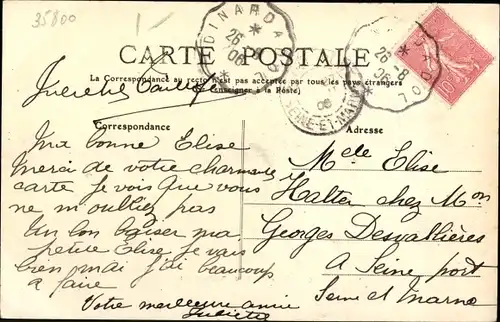 35800
DINARD A
26 -8
06
CARTE POSTALE
La Correspondance au recto n'est pas acceptée par tous les pays étrangers
(Renseigner à la Poste)
SEINE-ET-MARNE
26 -8
06
10
Correspondance
Adresse
Ma bonne Elise
Merci de votre charmante
carte je vois que vous
ne m'oubliez pas
Un bon baiser ma
petite Elise je vais
bien mai j'ai beaucoup
a faire
Votre meilleure amie
Juliette
Mele Elise
Halter chez Mon
Georges Desvallières
A Seine port
Seine et Marne